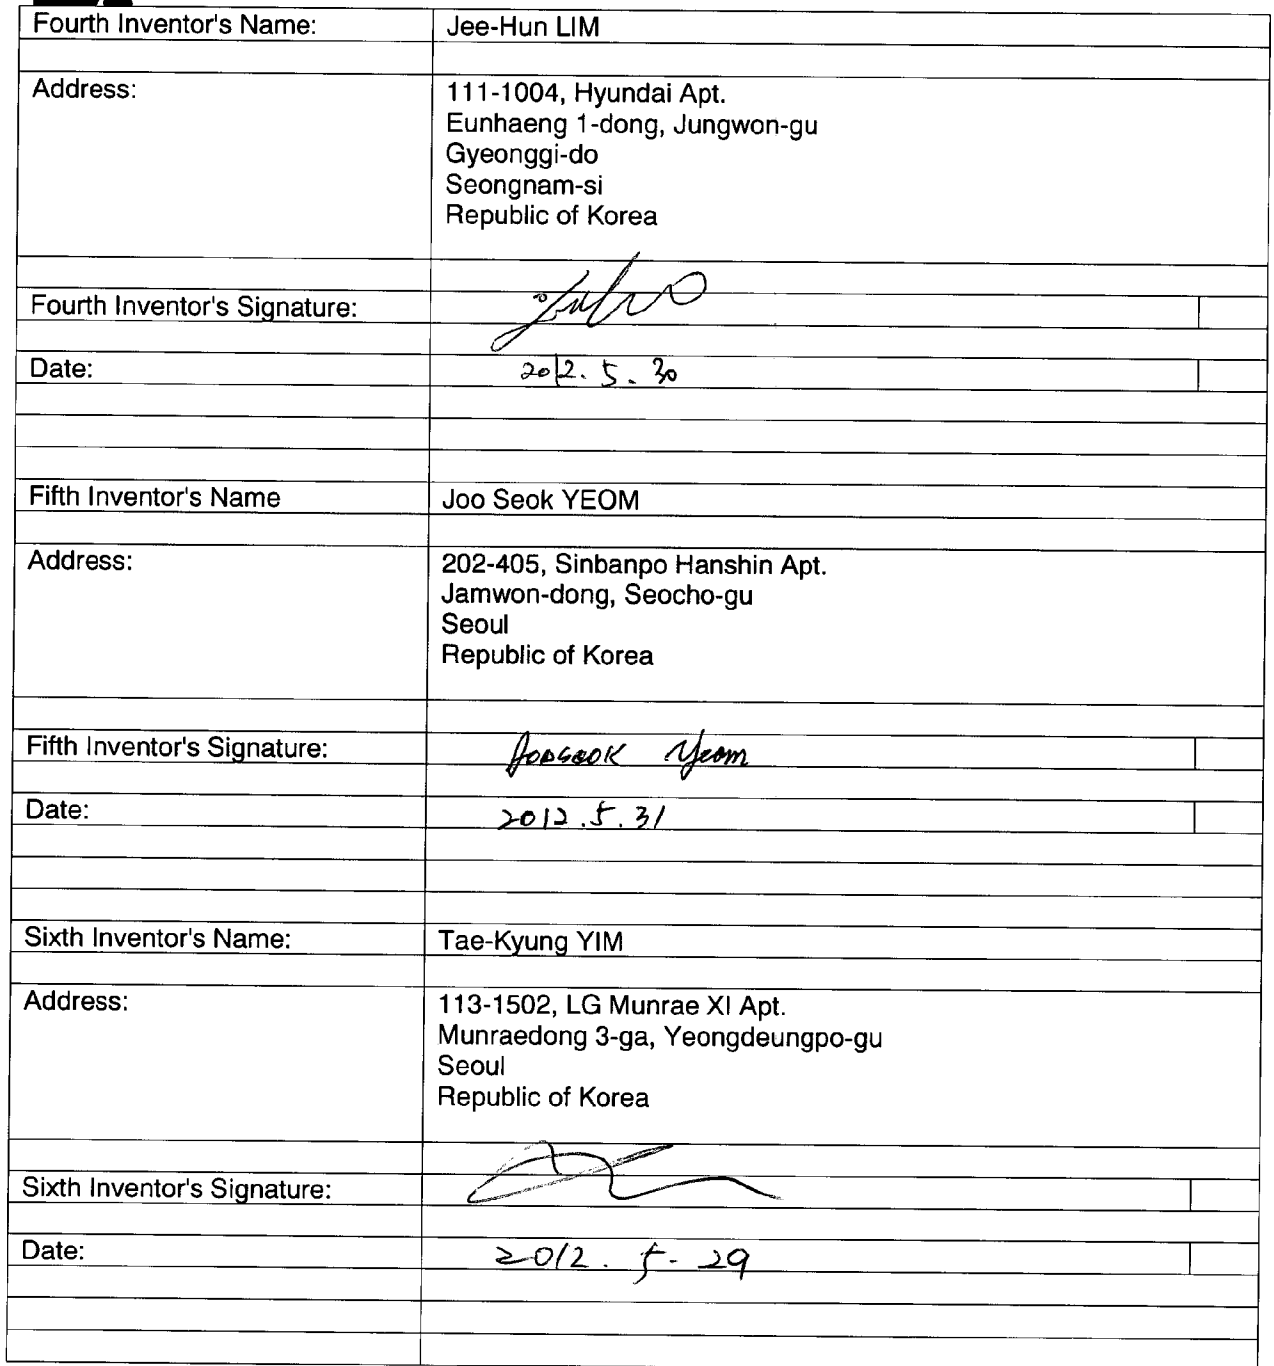 Fourth Inventor's Name: Jee-Hun LIM
Address: 111-1004, Hyundai Apt.
Eunhaeng 1-dong, Jungwon-gu
Gyeonggi-do
Seongnam-si
Republic of Korea
Fourth Inventor's Signature:
Date: 2012. 5. 30
Fifth Inventor's Name Joo Seok YEOM
Address: 202-405, Sinbanpo Hanshin Apt.
Jamwon-dong, Seocho-gu
Seoul
Republic of Korea
Fifth Inventor's Signature: Jooseok Yeom
Date: 2012.5.31
Sixth Inventor's Name: Tae-Kyung YIM
Address: 113-1502, LG Munrae XI Apt.
Munraedong 3-ga, Yeongdeungpo-gu
Seoul
Republic of Korea
Sixth Inventor's Signature:
Date: 2012. 5. 29